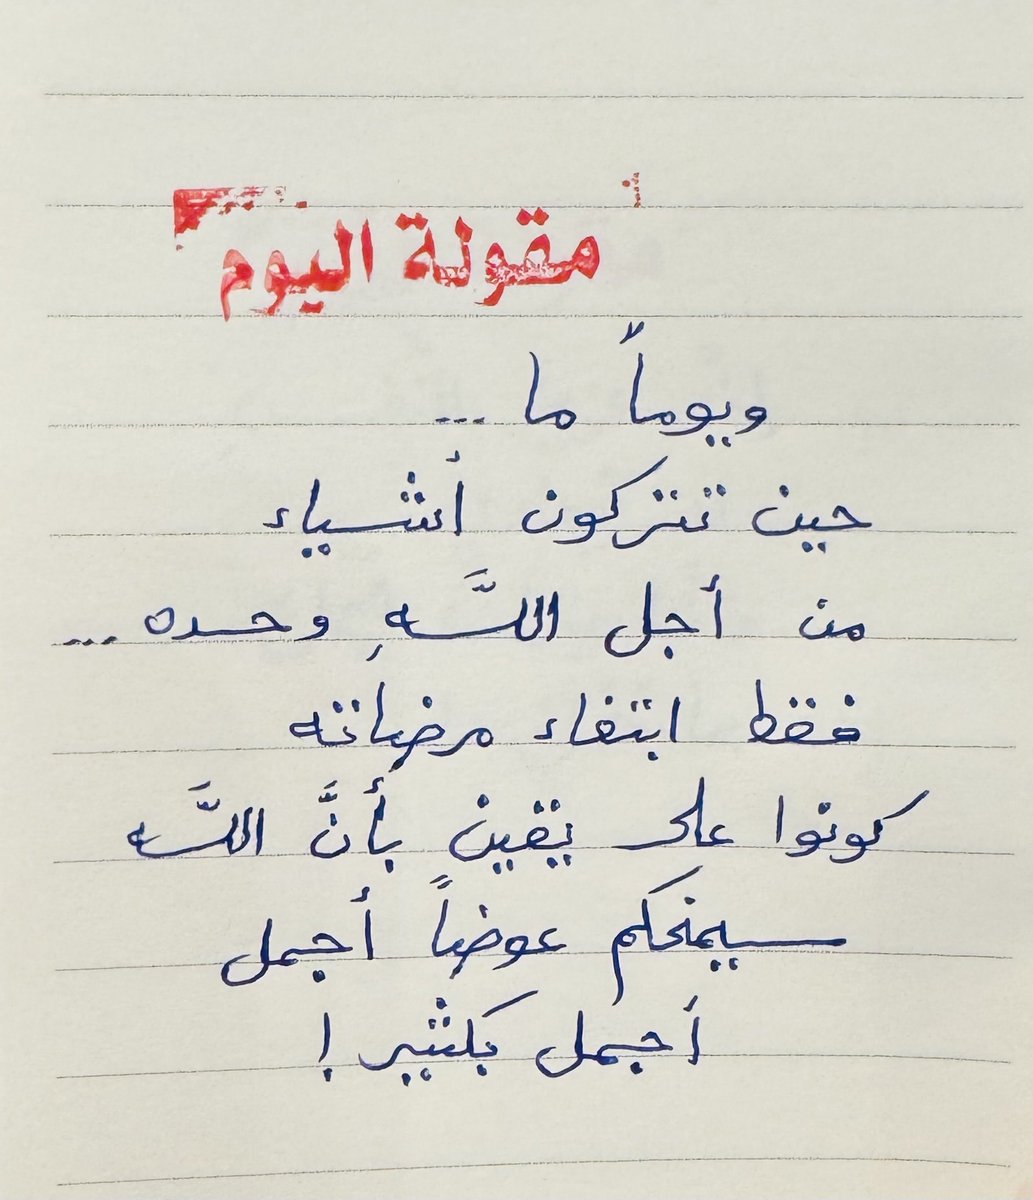 مقولة اليوم
ويوماً ما ...
حين تتركون أشياء
من أجل اللَّهِ وحده ...
فقط ابتغاء مرضاته
كونوا على يقين بأنَّ اللَّه
سيمنحكم عوضاً أجمل
أجمل بكثير !